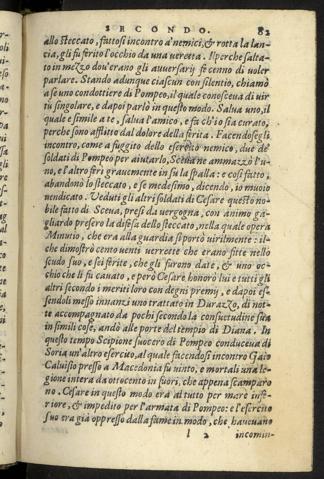 SECONDO. 82
allo steccato, fattosi incontro a' nemici, & rotta la lan-
cia, gli fu ferito l'occhio da una veretta. Il perche salta-
to in mezzo dou'erano gli auuersarij fe cenno di uoler
parlare. Stando adunque ciascun con silentio, chiamò
a se uno condottiere di Pompeo, il quale conosceua di uir
tù singolare, e dapoi parlò in questo modo. Salua uno, il
quale e simile a te, salua l'amico, e fa ch'io sia curato,
perche sono afflitto dal dolore della ferita. Facendosegli
incontro, come a fuggito dello esercito nemico, due de'
soldati di Pompeo per aiutarlo, Sceua ne ammazzò l'u-
no, e l'altro ferì grauemente in su la spalla: e cosi fatto,
abandonò lo steccato, e se medesimo, dicendo, io muoio
uendicato. Veduti gli altri soldati di Cesare questo no-
bile fatto di Sceua, presi da uergogna, con animo ga-
gliardo presero la difesa dello steccato, nella quale opera
Minutio, che era alla guardia si portò uirilmente: il-
che dimostrò cento uenti verrette che erano fitte nello
scudo suo, e sei ferite, che gli furono date, & uno oc-
chio che li fu cauato, e però Cesare honorò lui e tutti gli
altri secondo i meriti loro con degni premij, e dapoi es-
sendoli messo innanzi uno trattato in Durazzo, di not-
te accompagnato da pochi secondo la consuetudine sua
in simili cose, andò alle porte del tempio di Diana. In
questo tempo Scipione suocero di Pompeo conduceua di
Soria un'altro esercito, al quale facendosi incontro Gaio
Caluisio presso a Macedonia fu uinto, e mortali una le-
gione intera da ottocento in fuori, che appena scamparo
no. Cesare in questo modo era al tutto per mare infe-
riore, & impedito per l'armata di Pompeo: e l'esercito
suo era già oppresso dalla fame in modo, che haueuano
l 2 incomin-